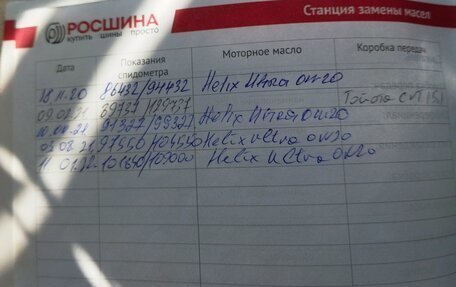 РОСШИНА
купить шины просто
Станция замены масел
Дата Показания спидометра Моторное масло Коробка передач
18.11.20 86432/94432 Helix Ultra 0W20
09.02.21 89727/109727 Toyota CVT
10.04.21 91327/99327 Helix Ultra 0W20
03.08.21 97550/104550 Helix Ultra 0W20
11.01.22 101640/109000 Helix Ultra 0W20